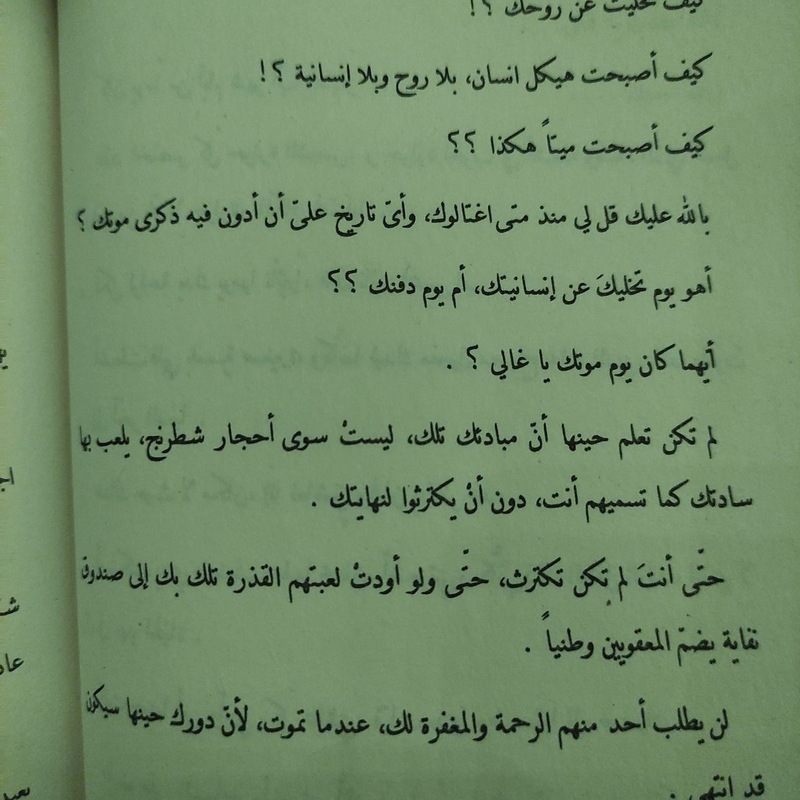 كيف تخليت عن روحك ؟!
كيف أصبحت هيكل انسان، بلا روح وبلا إنسانية ؟!
كيف أصبحت ميتاً هكذا ؟؟
بالله عليك قل لي منذ متى اغتالوك، وأىّ تاريخ علىّ أن أدون فيه ذكرى موتك ؟
أهو يوم تخليكَ عن إنسانيتك، أم يوم دفنك ؟؟
أيهما كان يوم موتك يا غالي ؟ .
لم تكن تعلم حينها أنّ مبادئك تلك، ليستْ سوى أحجار شطرنج، يلعب بها
سادتك كما تسميهم أنت، دون أنْ يكترثوا لنهايتك .
حتّى أنتَ لم تكن تكترث، حتّى ولو أودتْ لعبتهم القذرة تلك بك إلى صندوق
نفاية يضمّ المعقويين وطنياً .
لن يطلب أحد منهم الرحمة والمغفرة لك، عندما تموت، لأنّ دورك حينها سيكون
قد انتهى .